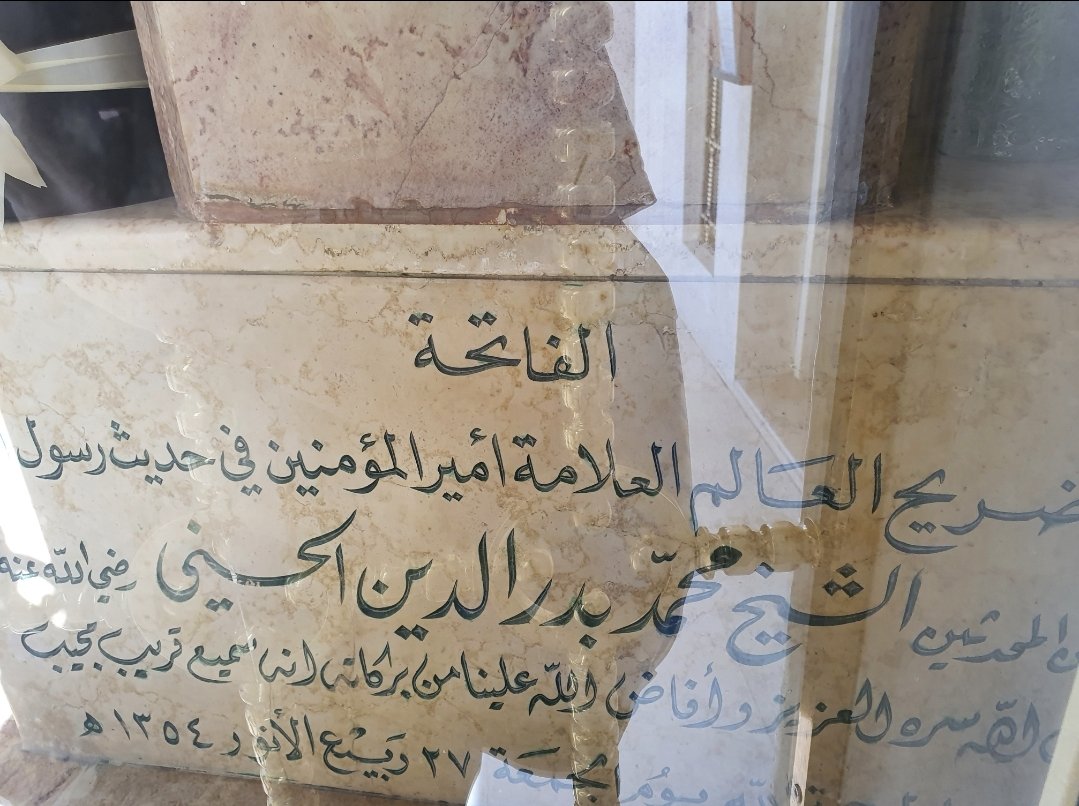 الفاتحة
ضريح العالم العلامة أمير المؤمنين في حديث رسول
المحدثين الشيخ محمّد بدر الدين الحسيني رضي الله عنه
الله سره العزيز وأفاض الله علينا من بركاته انه سميع قريب مجيب
الله يوم الجمعة ٢٧ ربيع الأنور ١٣٥٤ ه